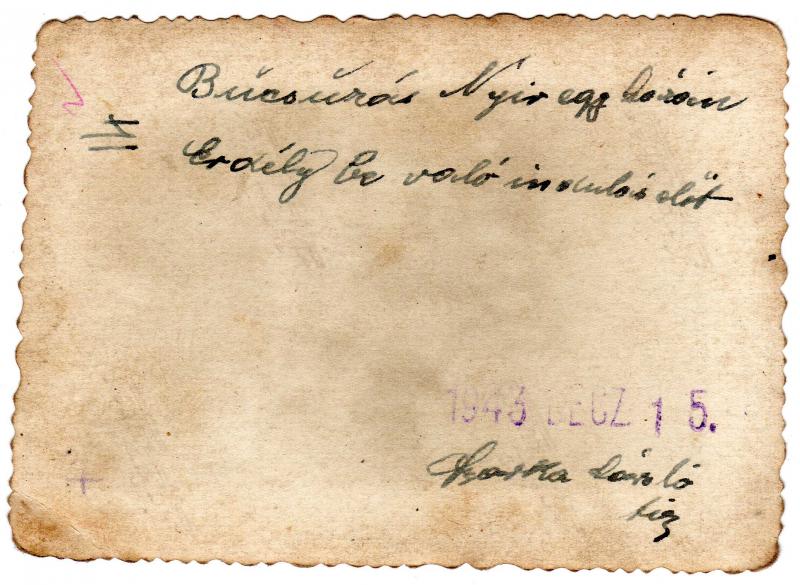 Búcsúzás Nyiregyházán
Erdély be való indulás előt
1943 DECZ 15.
Szarka László